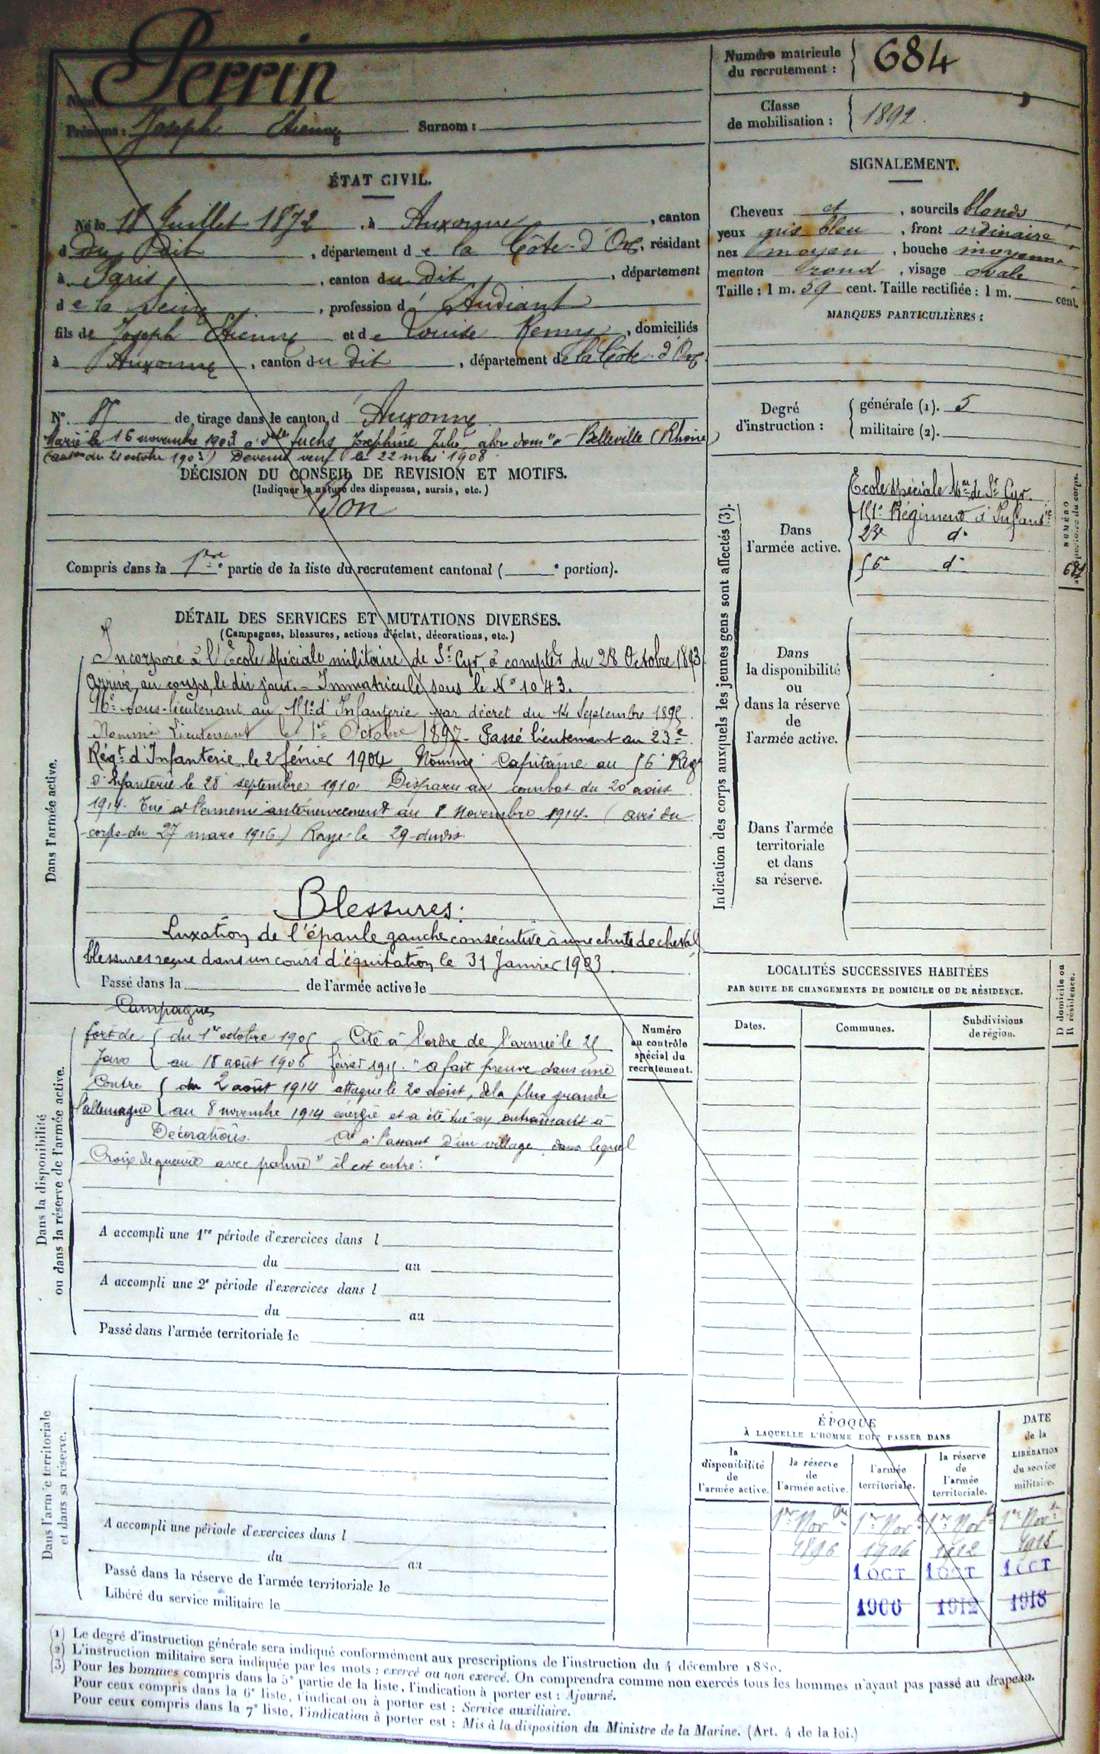 Perrin
Nom :
Prénoms : Joseph Etienne Surnom :
Numéro matricule du recrutement : 684
Classe de mobilisation : 1892
ÉTAT CIVIL.
Né le 18 Juillet 1872, à Auxonne, canton
d du dit, département de la Côte-d'Or, résidant
à Paris, canton du dit, département
de la Seine, profession d'étudiant
fils de Joseph Etienne et de Louise, domiciliés
à Auxonne, canton du dit, département de la Côte d'Or
N° de tirage dans le canton d'Auxonne
Marié le 16 novembre 1903 à Delle Fuchs Joséphine Julie Belleville (Rhône)
du 21 octobre 1903) Devenu veuf le 22 mai 1908
DÉCISION DU CONSEIL DE REVISION ET MOTIFS.
(Indiquer la nature des dispenses, sursis, etc.)
Bon
Compris dans la 1re partie de la liste du recrutement cantonal ( e portion).
SIGNALEMENT.
Cheveux et, sourcils blonds
yeux gris bleu, front ordinaire
nez moyen, bouche moyenne
menton rond, visage ovale
Taille : 1 m. 59 cent. Taille rectifiée : 1 m. cent.
MARQUES PARTICULIÈRES :
Degré d'instruction :
générale (1). 5
militaire (2).
DÉTAIL DES SERVICES ET MUTATIONS DIVERSES.
(Campagnes, blessures, actions d'éclat, décorations, etc.)
Dans l'armée active.
Incorporé à l'Ecole spéciale militaire de St Cyr, à compter du 28 Octobre 1893
Arrivé au corps le dit jour. – Immatriculé sous le N° 1043.
Sous-lieutenant au 151e d'Infanterie par décret du 14 Septembre 1895
Nommé Lieutenant le 1er Octobre 1897 – Passé lieutenant au 23e
Régt d'Infanterie, le 2 février 1904 Nommé Capitaine au 56e Régt
d'Infanterie le 28 septembre 1910 Disparu au combat du 20 août
1914 Tué à l'ennemi antérieurement au 8 Novembre 1914. (avis du
corps du 27 mars 1916) Rayé le 29 dudit
Blessures :
Luxation de l'épaule gauche consécutive à une chute de cheval
blessures reçue dans un cours d'équitation, le 31 Janvier 1903.
Passé dans la de l'armée active le
Campagnes
fort de du 1er octobre 1905 Cité à l'ordre de l'armée le 25
au 18 août 1906 février 1915. "a fait preuve dans une
Contre du 2 août 1914 attaque le 20 août, de la plus grande
l'allemagne au 8 novembre 1914 énergie et a été tué en entraînant sa
Décorations. Cie à l'assaut d'un village dans lequel
Croix de guerre avec palme" il est entré."
Numéro au contrôle spécial du recrutement.
Dans la disponibilité ou dans la réserve de l'armée active.
A accompli une 1re période d'exercices dans l
du au
A accompli une 2e période d'exercices dans l
du au
Passé dans l'armée territoriale le
Dans l'armée territoriale et dans sa réserve.
A accompli une période d'exercices dans l
du au
Passé dans la réserve de l'armée territoriale le
Libéré du service militaire le
Indication des corps auxquels les jeunes gens sont affectés (3).
Dans l'armée active.
Ecole spéciale Mre de St Cyr.
151e Régiment d'Infanie
23e do
56e do
NUMÉRO
Dans la disponibilité ou dans la réserve de l'armée active.
Dans l'armée territoriale et dans sa réserve.
LOCALITÉS SUCCESSIVES HABITÉES
PAR SUITE DE CHANGEMENTS DE DOMICILE OU DE RÉSIDENCE.
Dates.
Communes.
Subdivisions de région.
D domicile ou R résidence.
ÉPOQUE
À LAQUELLE L'HOMME DOIT PASSER DANS
la disponibilité de l'armée active.
la réserve de l'armée active.
l'armée territoriale.
la réserve de l'armée territoriale.
DATE de la LIBÉRATION du service militaire.
1er Nov. 1er Nov. 1er Nov. 1er Nov.
1896 1906 1912 1918
1 OCT 1 OCT 1 OCT
1906 1912 1918
(1) Le degré d'instruction générale sera indiqué conformément aux prescriptions de l'instruction du 4 décembre 1889.
(2) L'instruction militaire sera indiquée par les mots : exercé ou non exercé. On comprendra comme non exercés tous les hommes n'ayant pas passé au drapeau.
(3) Pour les hommes compris dans la 5e partie de la liste, l'indication à porter est : Ajourné.
Pour ceux compris dans la 6e liste, l'indication à porter est : Service auxiliaire.
Pour ceux compris dans la 7e liste, l'indication à porter est : Mis à la disposition du Ministre de la Marine. (Art. 4 de la loi.)